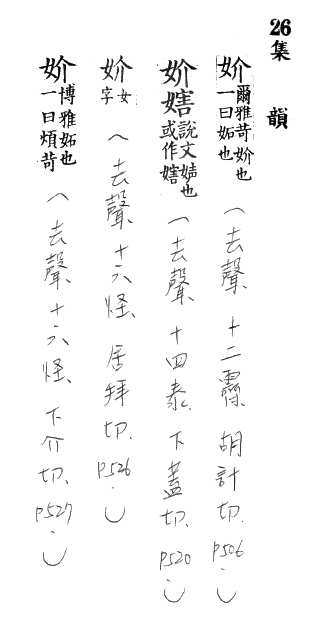 26集韻
妎爾雅苛妎也一曰妬也（去聲、十二霽、胡計切、P506.）
妎㛿說文妬也或作㛿（去聲、十四泰、下蓋切、P520.）
妎女字（去聲、十六怪、居拜切、P526.）
妎博雅妬也一曰煩苛（去聲、十六怪、下介切、P527.）